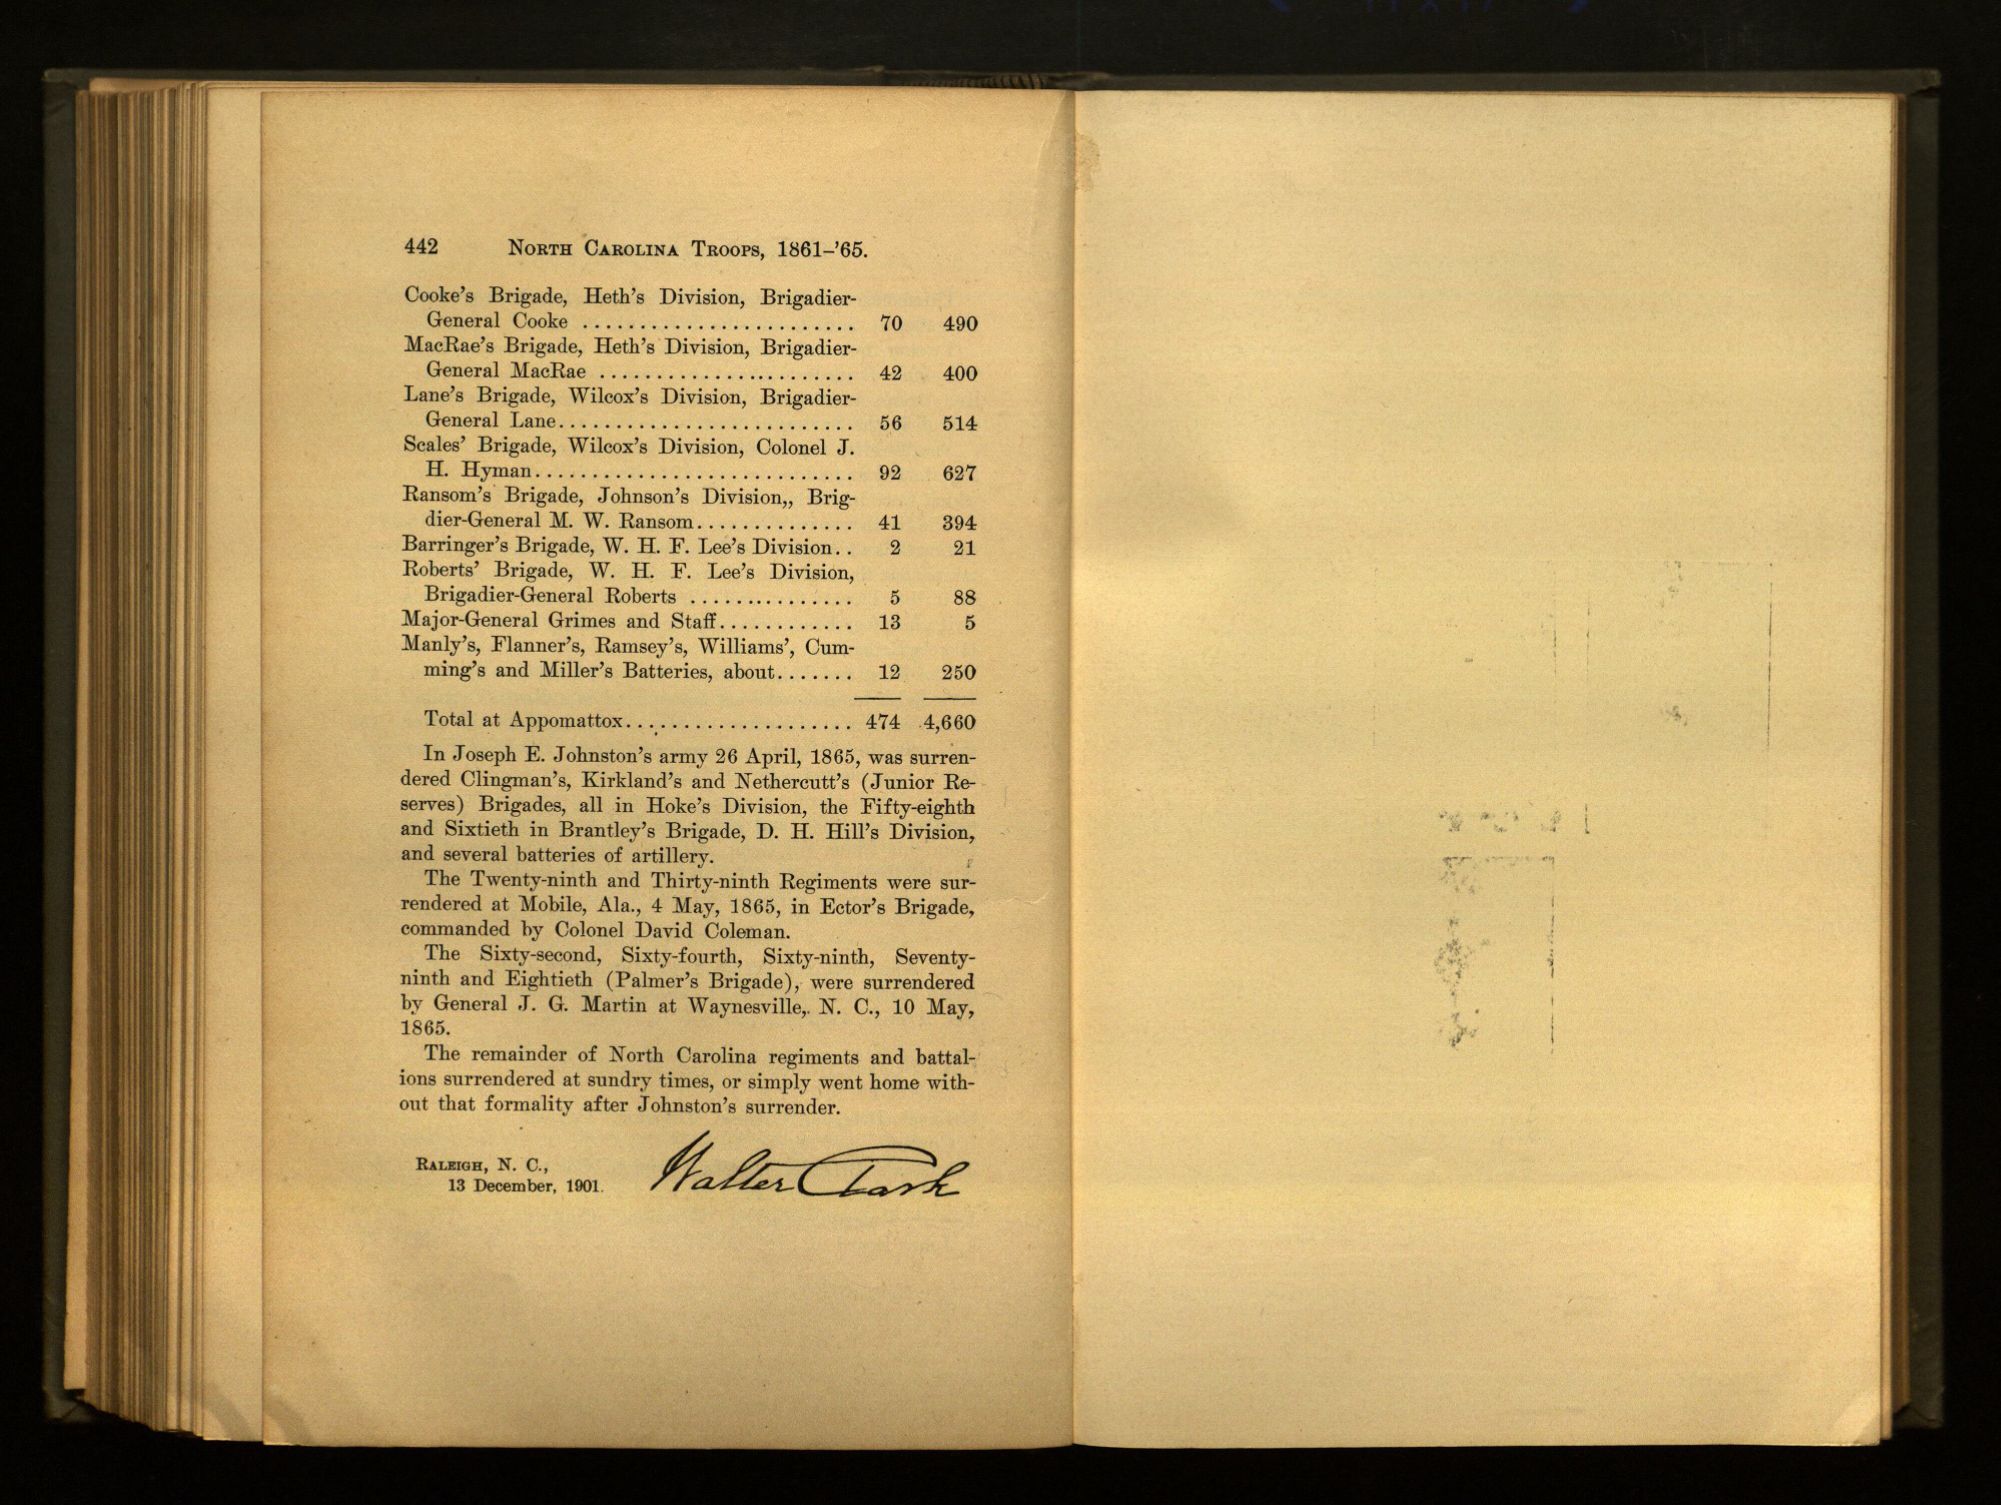 442 NORTH CAROLINA TROOPS, 1861-'65.
Cooke's Brigade, Heth's Division, Brigadier-
General Cooke ........................ 70 490
MacRae's Brigade, Heth's Division, Brigadier-
General MacRae ....................... 42 400
Lane's Brigade, Wilcox's Division, Brigadier-
General Lane.......................... 56 514
Scales' Brigade, Wilcox's Division, Colonel J.
H. Hyman............................ 92 627
Ransom's Brigade, Johnson's Division,, Brig-
dier-General M. W. Ransom.............. 41 394
Barringer's Brigade, W. H. F. Lee's Division.. 2 21
Roberts' Brigade, W. H. F. Lee's Division,
Brigadier-General Roberts ............... 5 88
Major-General Grimes and Staff............ 13 5
Manly's, Flanner's, Ramsey's, Williams', Cum-
ming's and Miller's Batteries, about....... 12 250
Total at Appomattox.................... 474 4,660
In Joseph E. Johnston's army 26 April, 1865, was surren-
dered Clingman's, Kirkland's and Nethercutt's (Junior Re-
serves) Brigades, all in Hoke's Division, the Fifty-eighth
and Sixtieth in Brantley's Brigade, D. H. Hill's Division,
and several batteries of artillery.
The Twenty-ninth and Thirty-ninth Regiments were sur-
rendered at Mobile, Ala., 4 May, 1865, in Ector's Brigade,
commanded by Colonel David Coleman.
The Sixty-second, Sixty-fourth, Sixty-ninth, Seventy-
ninth and Eightieth (Palmer's Brigade), were surrendered
by General J. G. Martin at Waynesville,. N. C., 10 May,
1865.
The remainder of North Carolina regiments and battal-
ions surrendered at sundry times, or simply went home with-
out that formality after Johnston's surrender.
RALEIGH, N. C.,
13 December, 1901.
Walter Clark